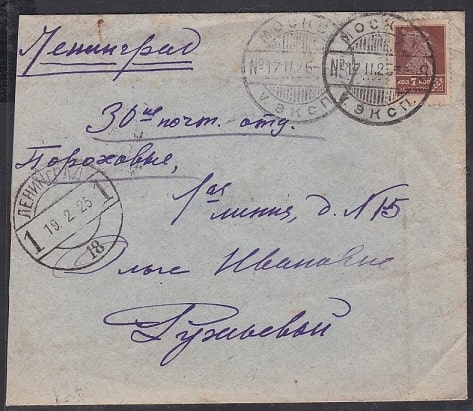 Ленинград
МОСКВА
№ 17 11 25
7. ЭКСП.
МОСКВА
№ 17 11 25 - C
7. ЭКСП.
КОП 7 КОП
30ое почт. отд.
Пороховые,
1ая линия, д. №15
ЛЕНИНГРАД
1 19.2.25 1
18
Ольге Ивановне
Ружьевой